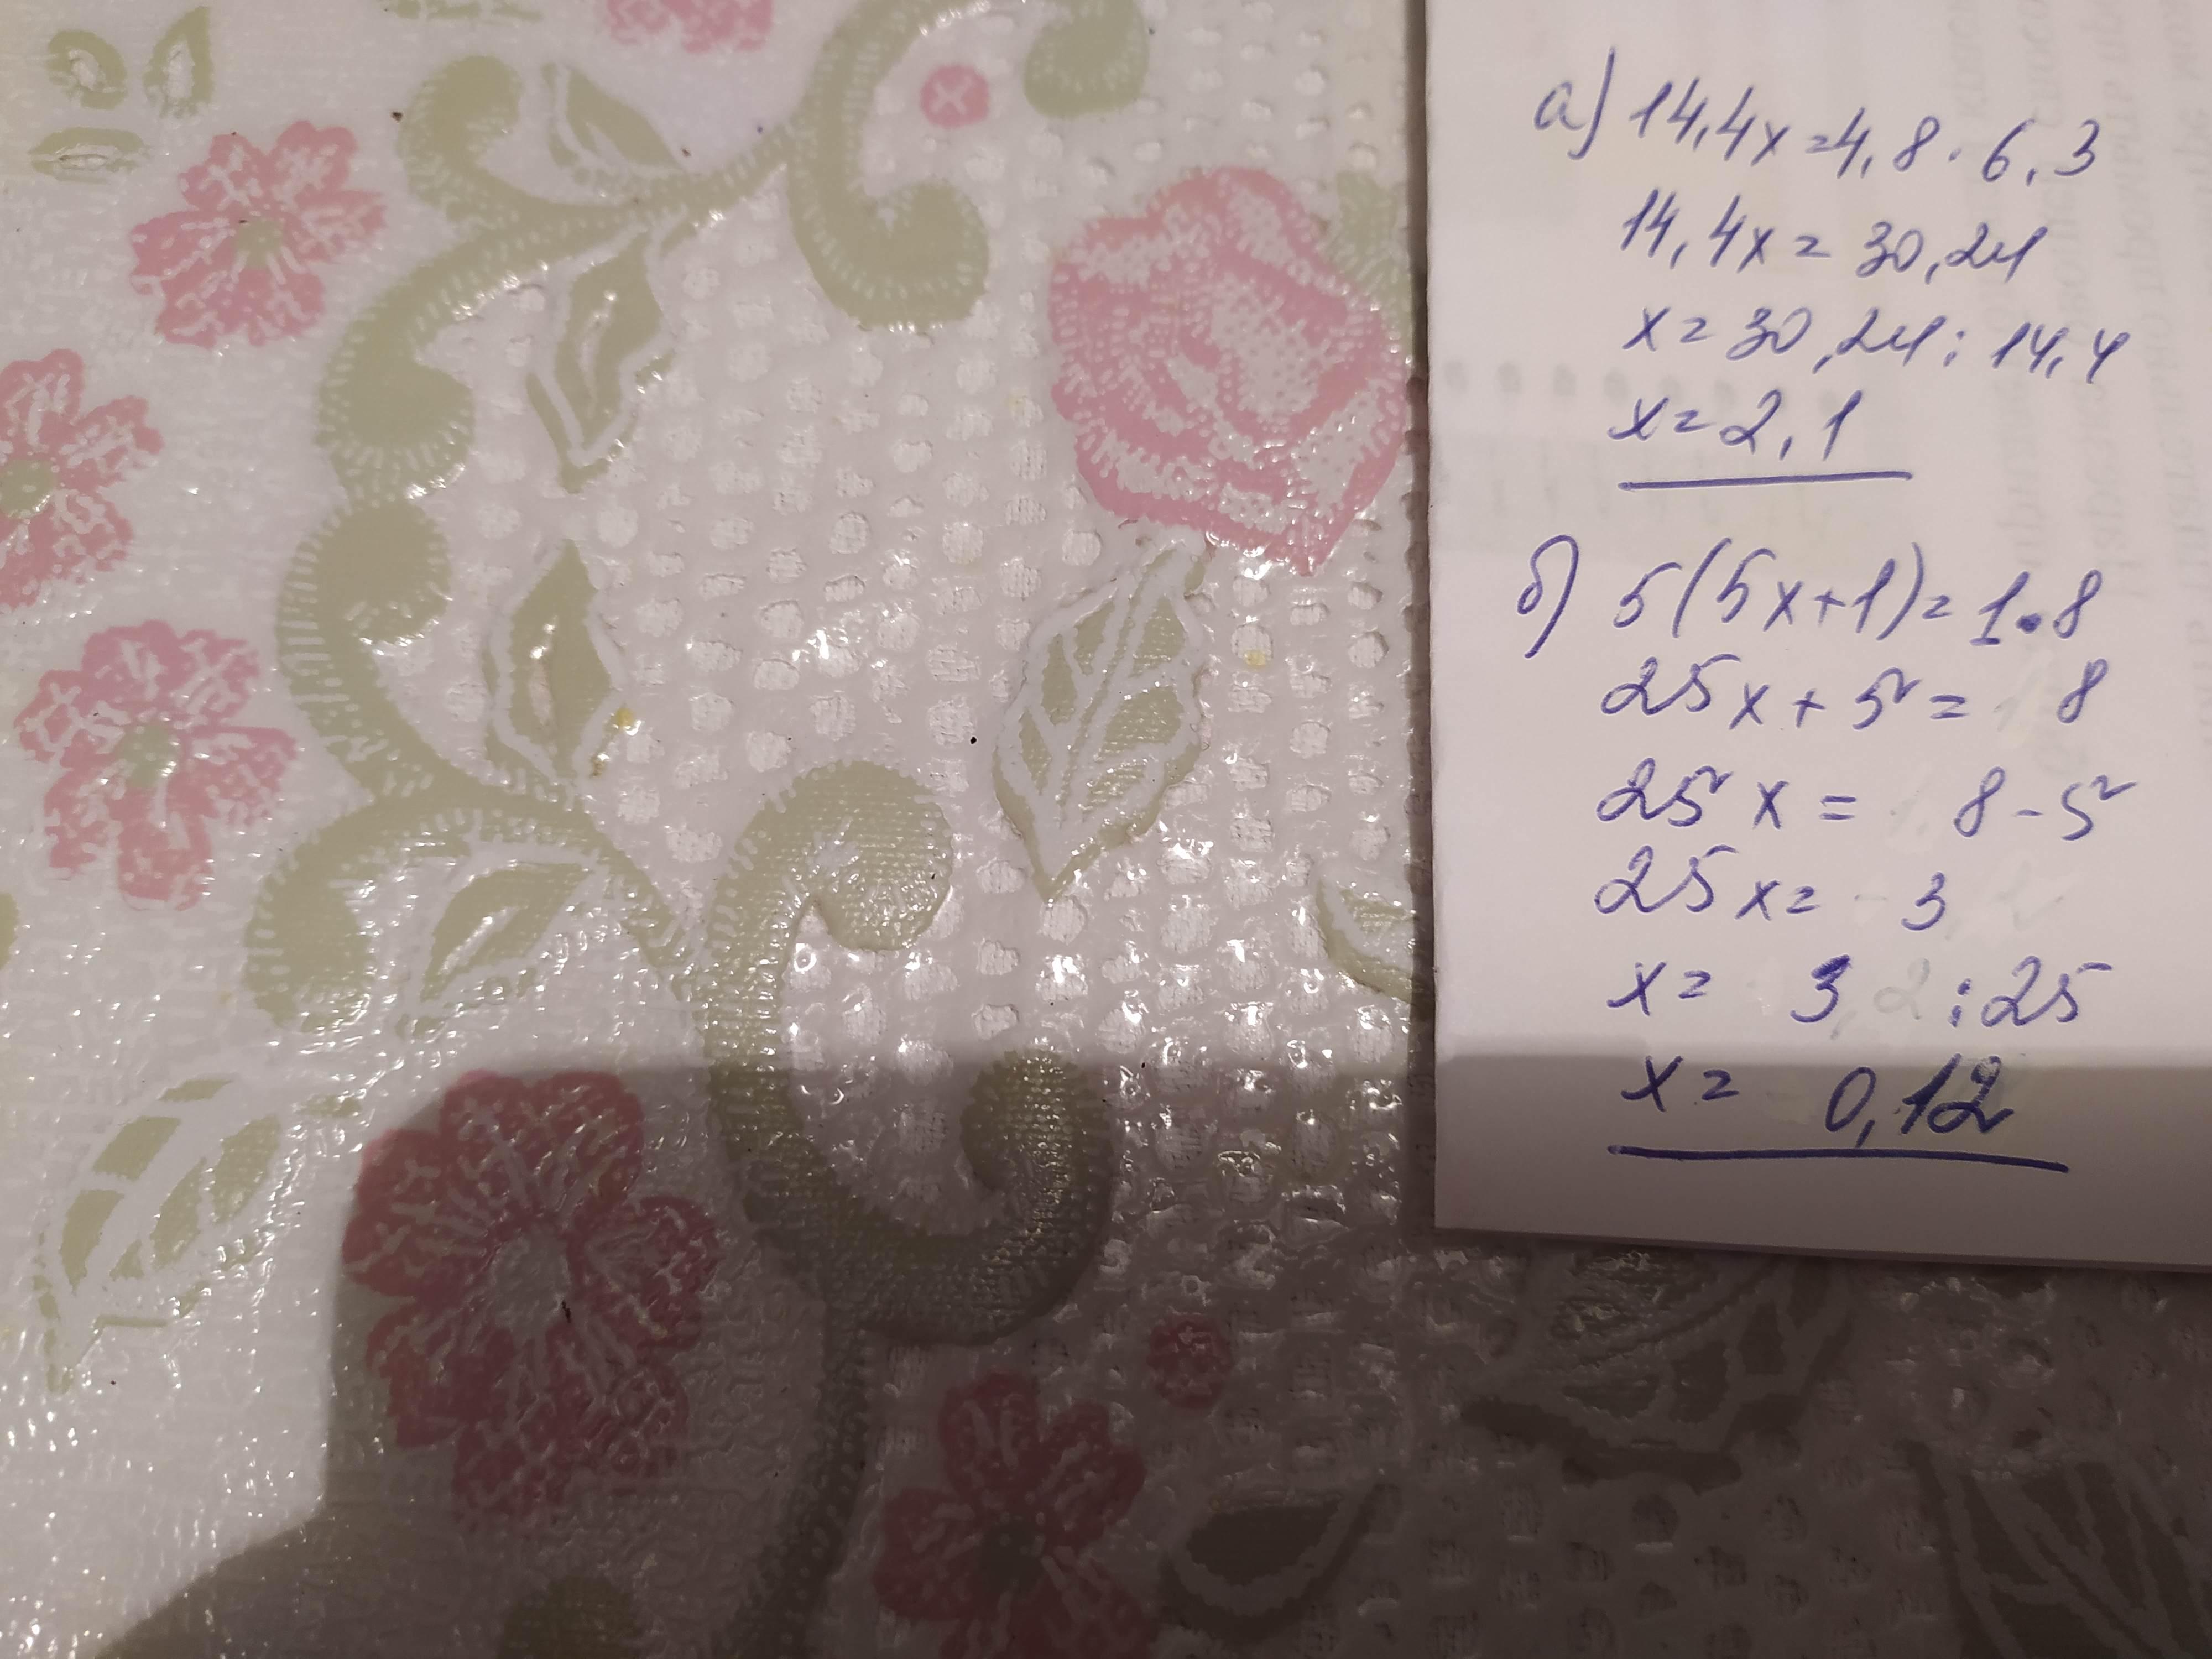 а) 14,4x=4,8·6,3
14,4x=30,24
x=30,24:14,4
x=2,1
б) 5(5x+1)=1·8
25x+5=8
25x=8-5
25x=3
x=3:25
x=0,12